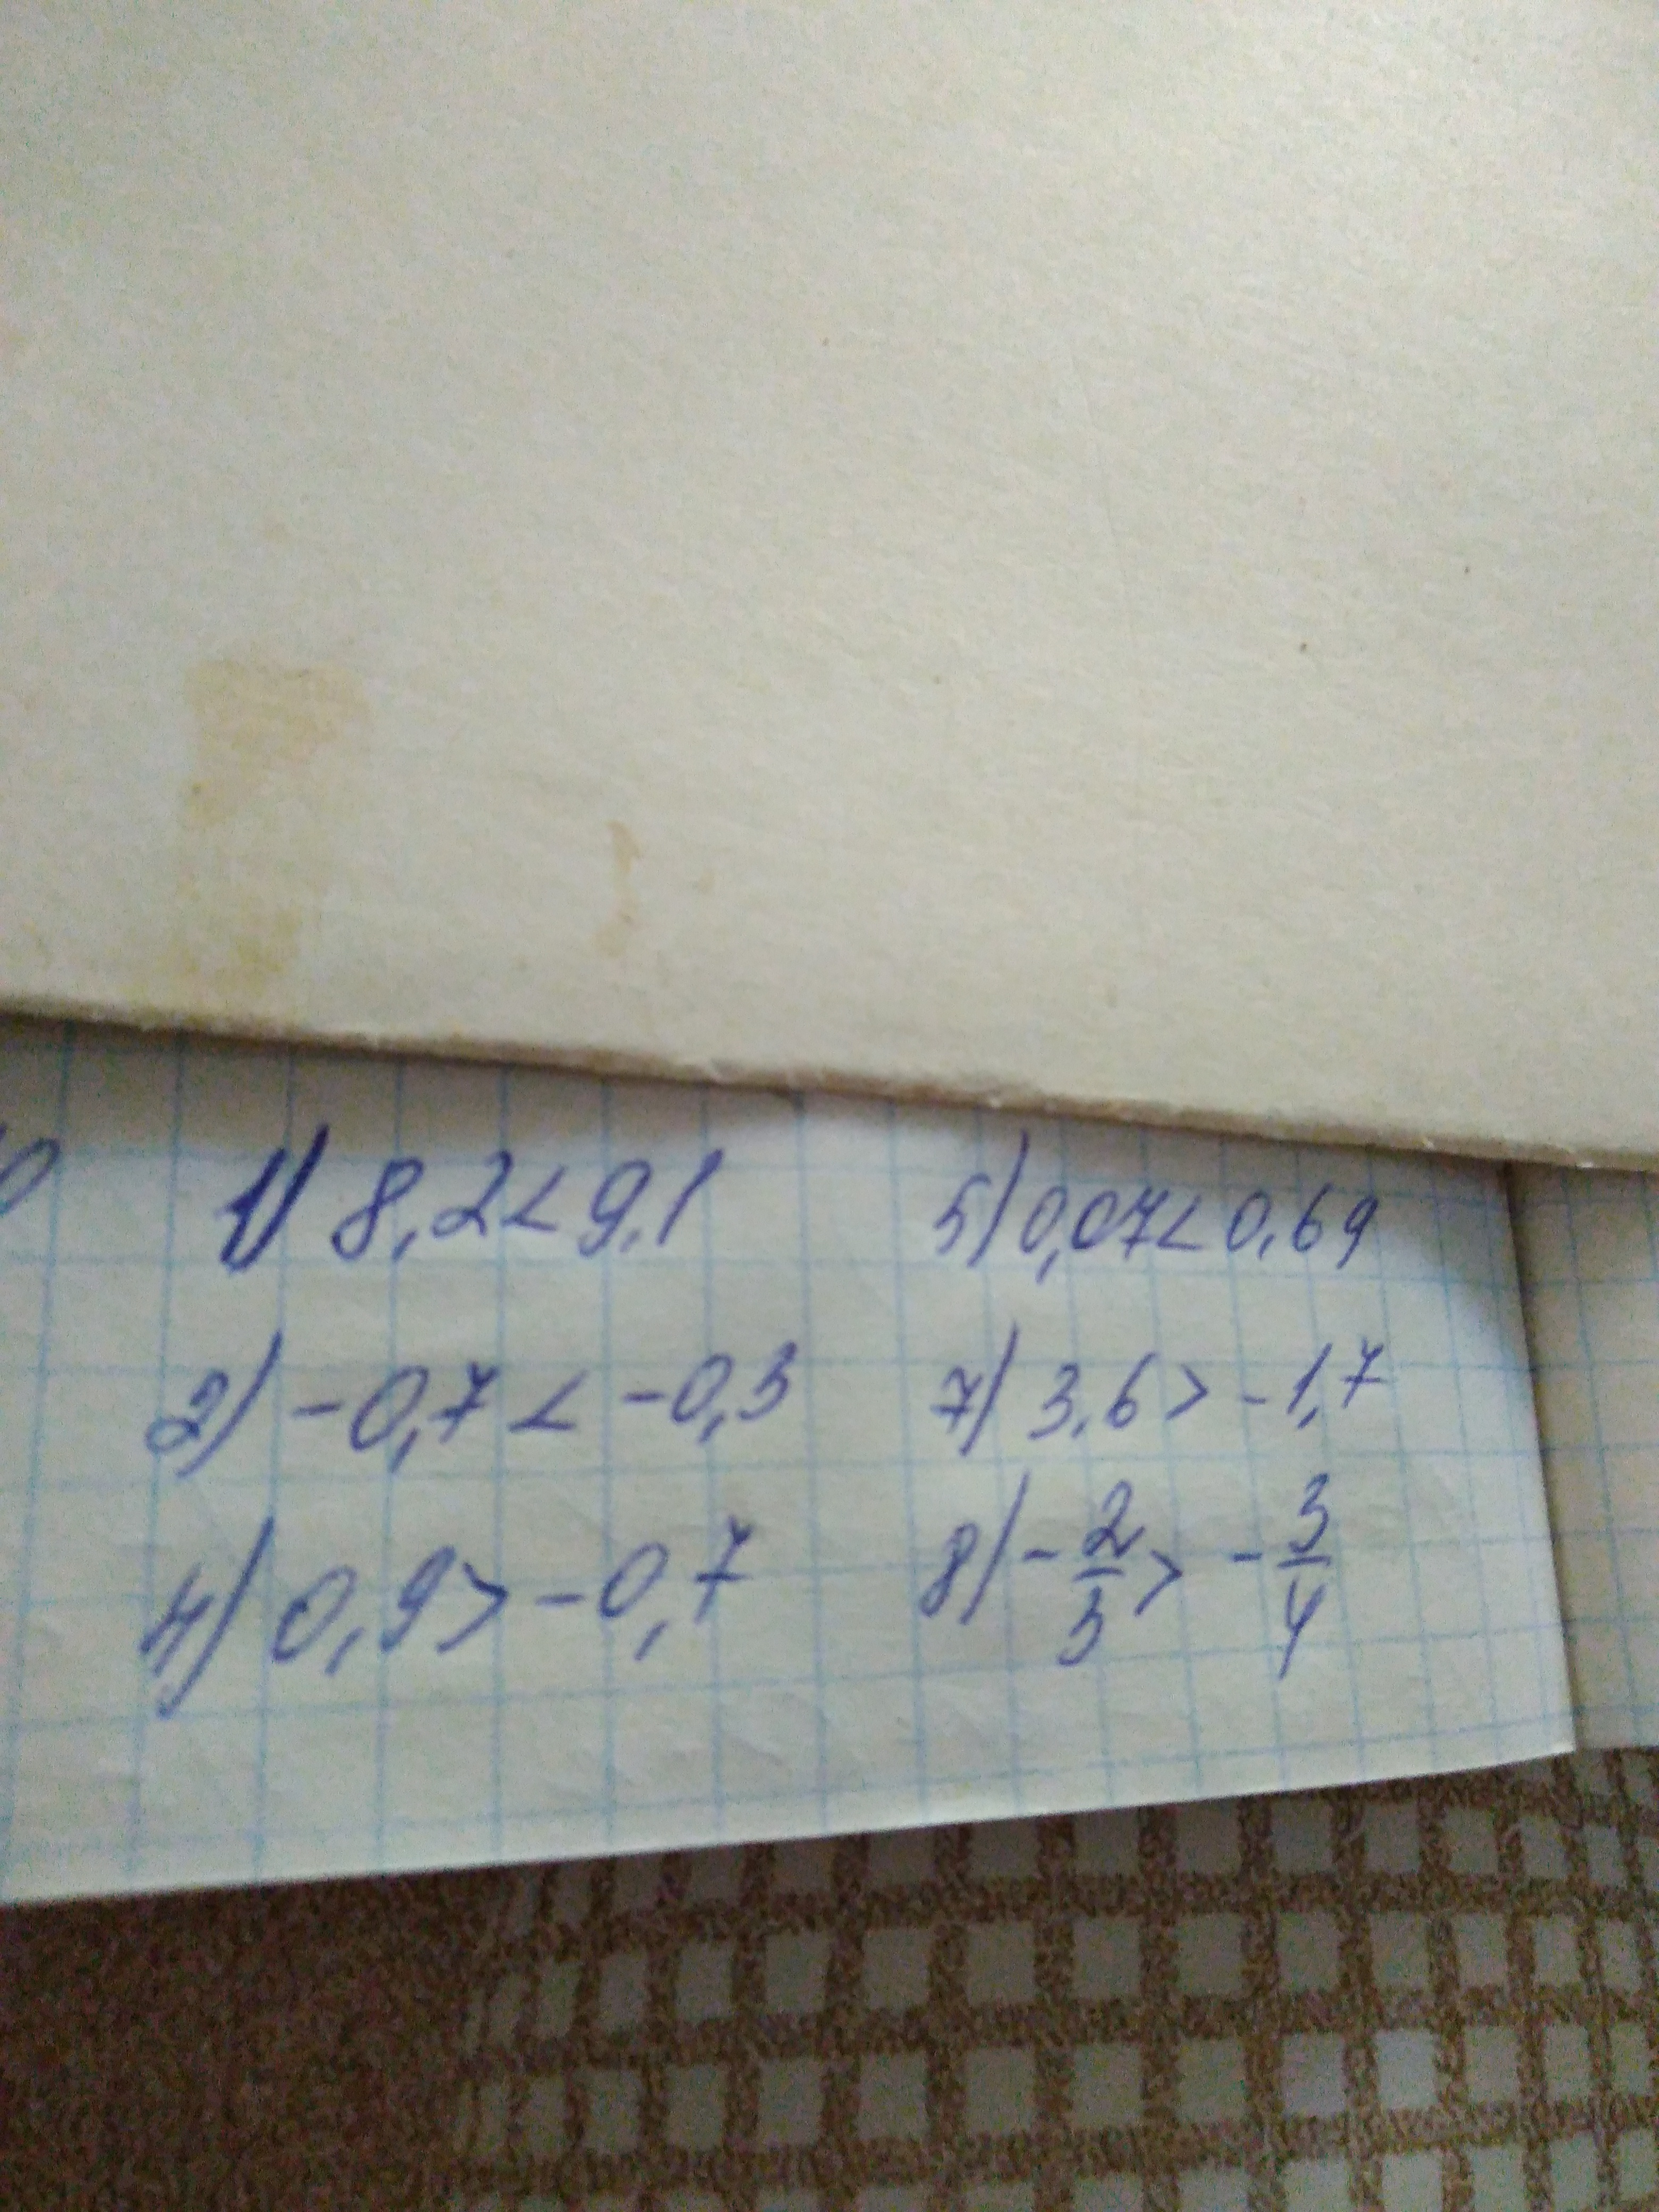 1) 8,2 < 9,1
2) -0,7 < -0,3
4) 0,9 > -0,7
5) 0,07 < 0,69
7) 3,6 > -1,7
8) -2/5 > -3/4